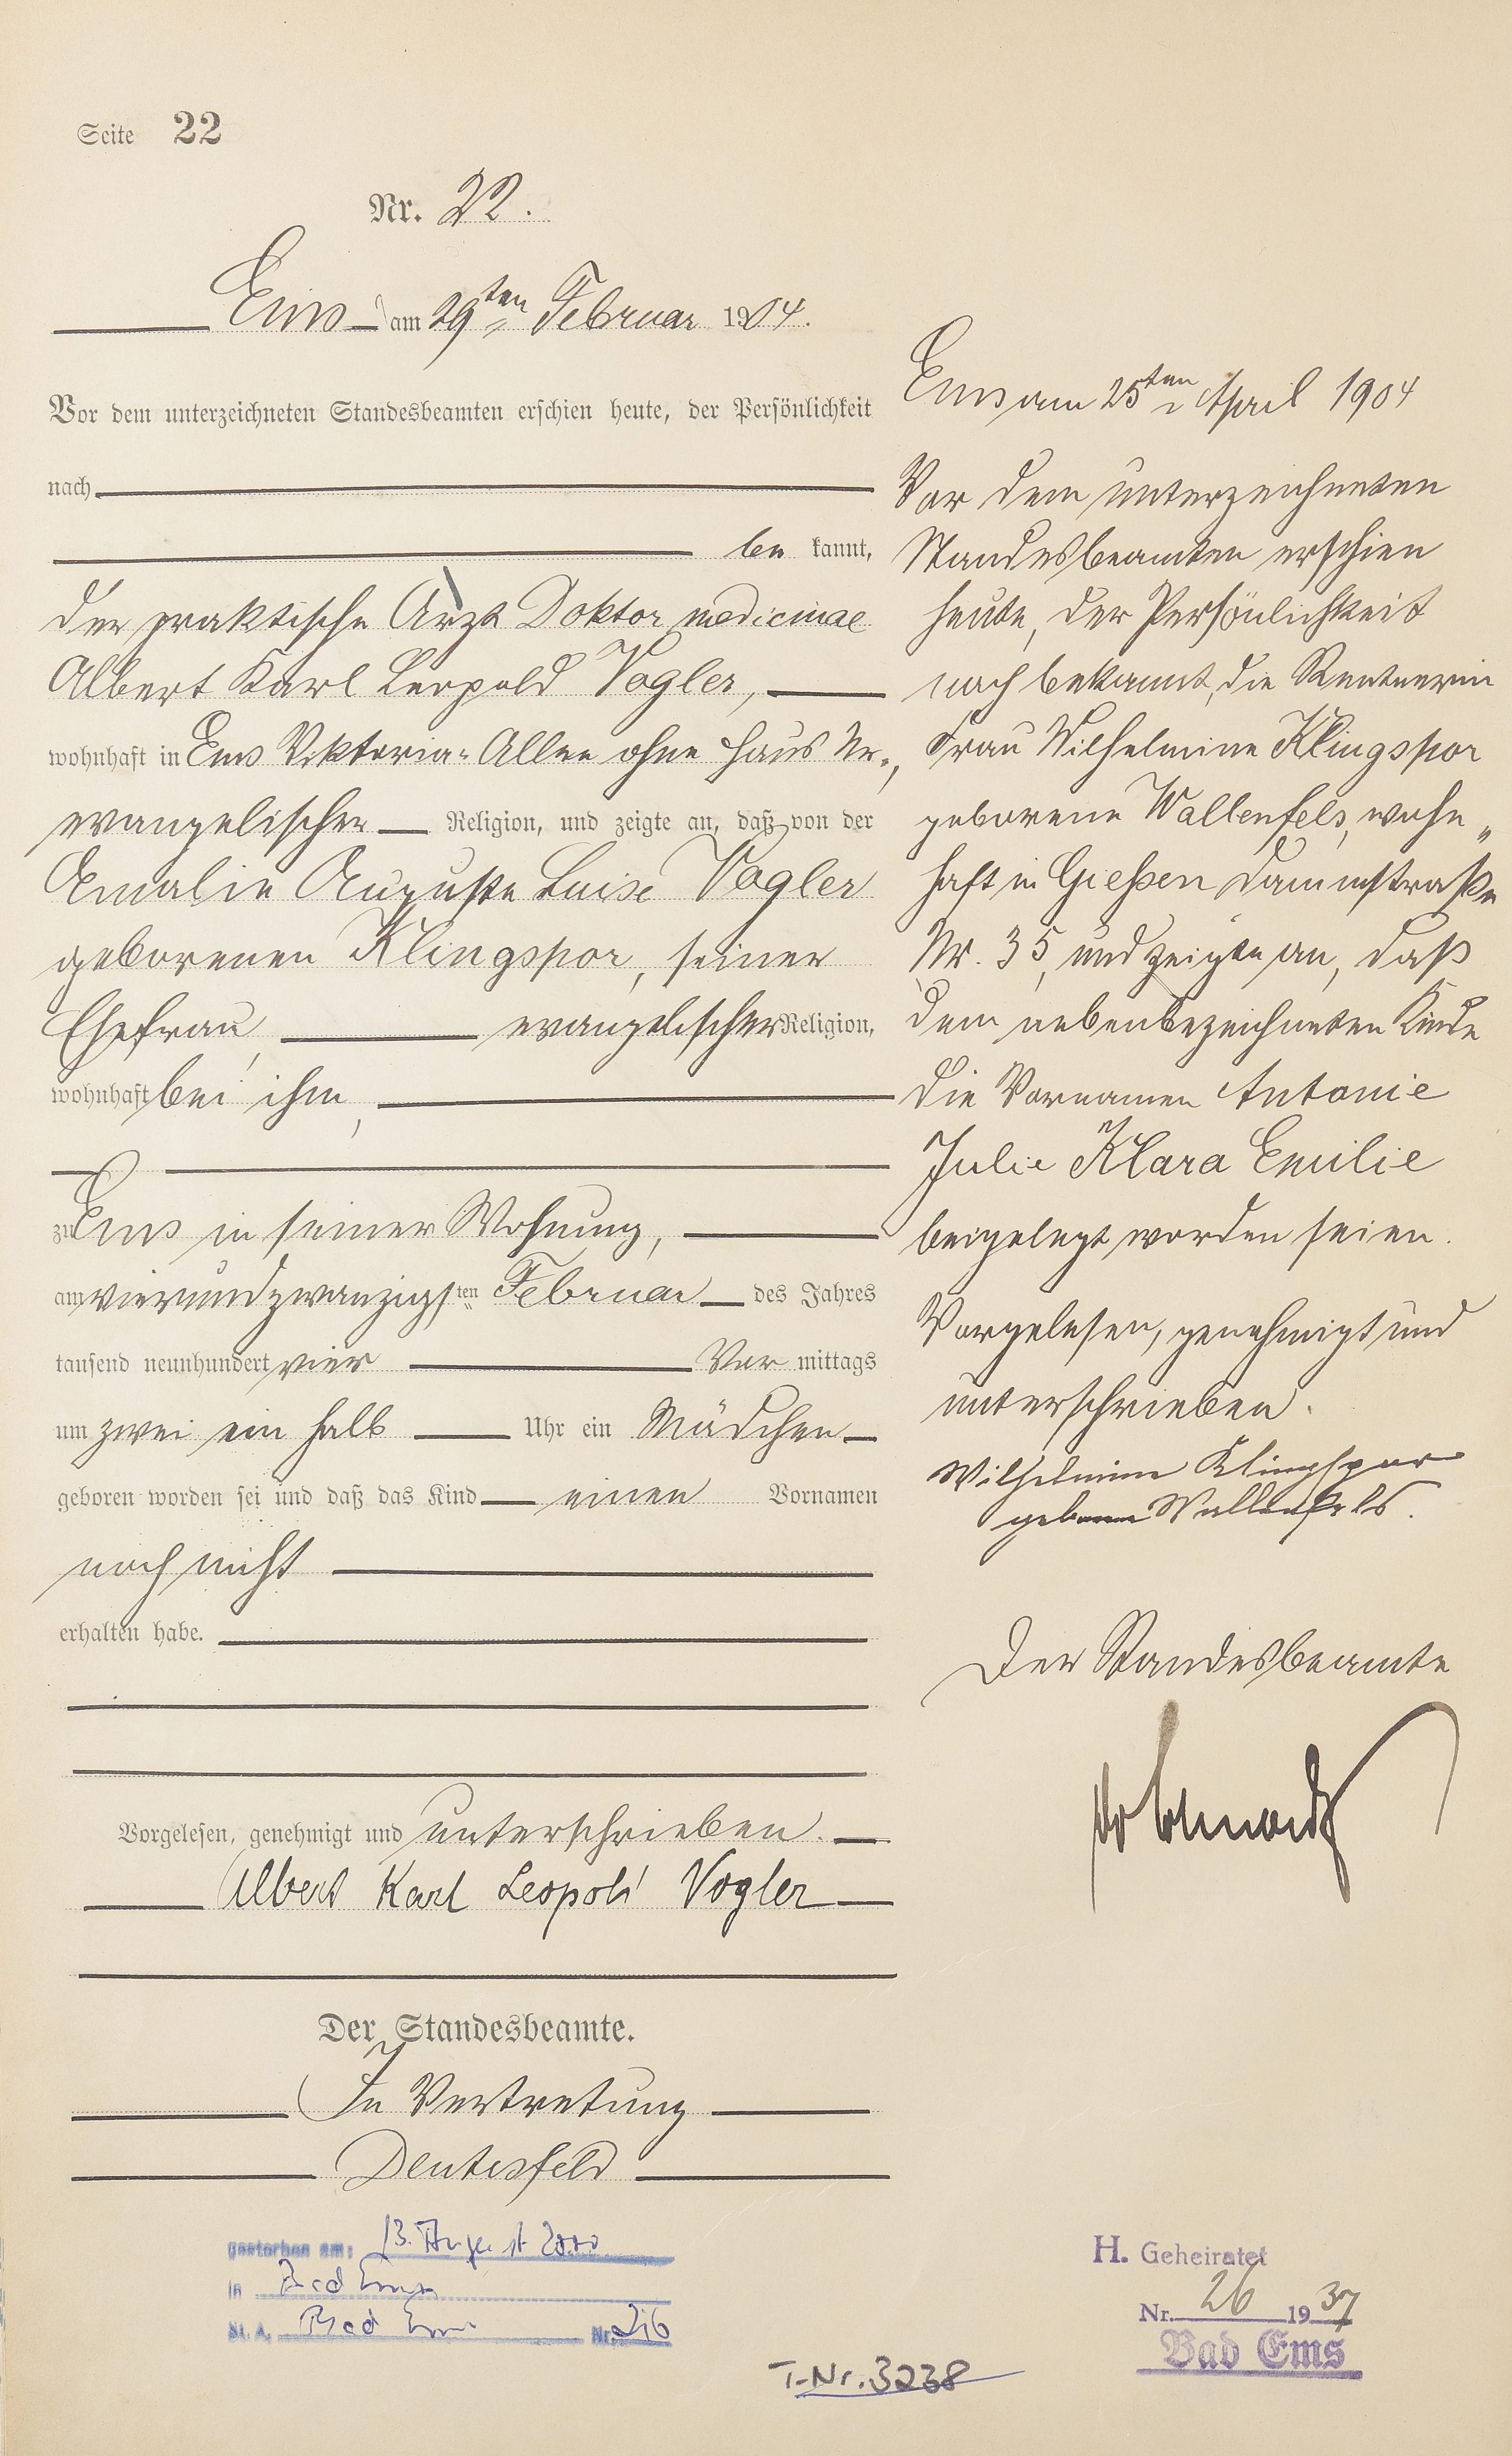 Seite 22
Nr. 22.
Ems am 29ten Februar 1904.
Vor dem unterzeichneten Standesbeamten erschien heute, der Persönlichkeit
nach
be kannt,
der praktische Arzt Doktor medicinae
Albert Karl Leopold Vogler,
wohnhaft in Ems Viktoria-Allee ohne Haus Nr.,
evangelischer Religion, und zeigte an, daß von der
Amalie Auguste Luise Vogler
geborenen Klingspor, seiner
Ehefrau, evangelischer Religion,
wohnhaft bei ihm,
zu Ems in seiner Wohnung,
am vierundzwanzigsten Februar des Jahres
tausend neunhundert vier Vor mittags
um zwei ein halb Uhr ein Mädchen
geboren worden sei und daß das Kind einen Vornamen
noch nicht
erhalten habe.
Vorgelesen, genehmigt und unterschrieben.
Albert Karl Leopold Vogler
Der Standesbeamte.
In Vertretung
Deutesfeld
gestorben am: 13. August 2000
in Bad Ems
St. A. Bad Ems Nr. 216
Ems am 25ten April 1904
Vor dem unterzeichneten
Standesbeamten erschien
heute, der Persönlichkeit
nach bekannt, die Rentnerin
Frau Wilhelmine Klingspor
geborene Wallenfels, wohn„
haft in Gießen Dammstraße
Nr. 35, und zeigte an, daß
dem nebenbezeichneten Kinde
die Vornamen Antonie
Julie Klara Emilie
beigelegt worden seien.
Vorgelesen, genehmigt und
unterschrieben.
Wilhelmine Klingspor
geborene Wallenfels.
Der Standesbeamte
H. Geheiratet
Nr. 26 1937
Bad Ems
T.-Nr. 3238